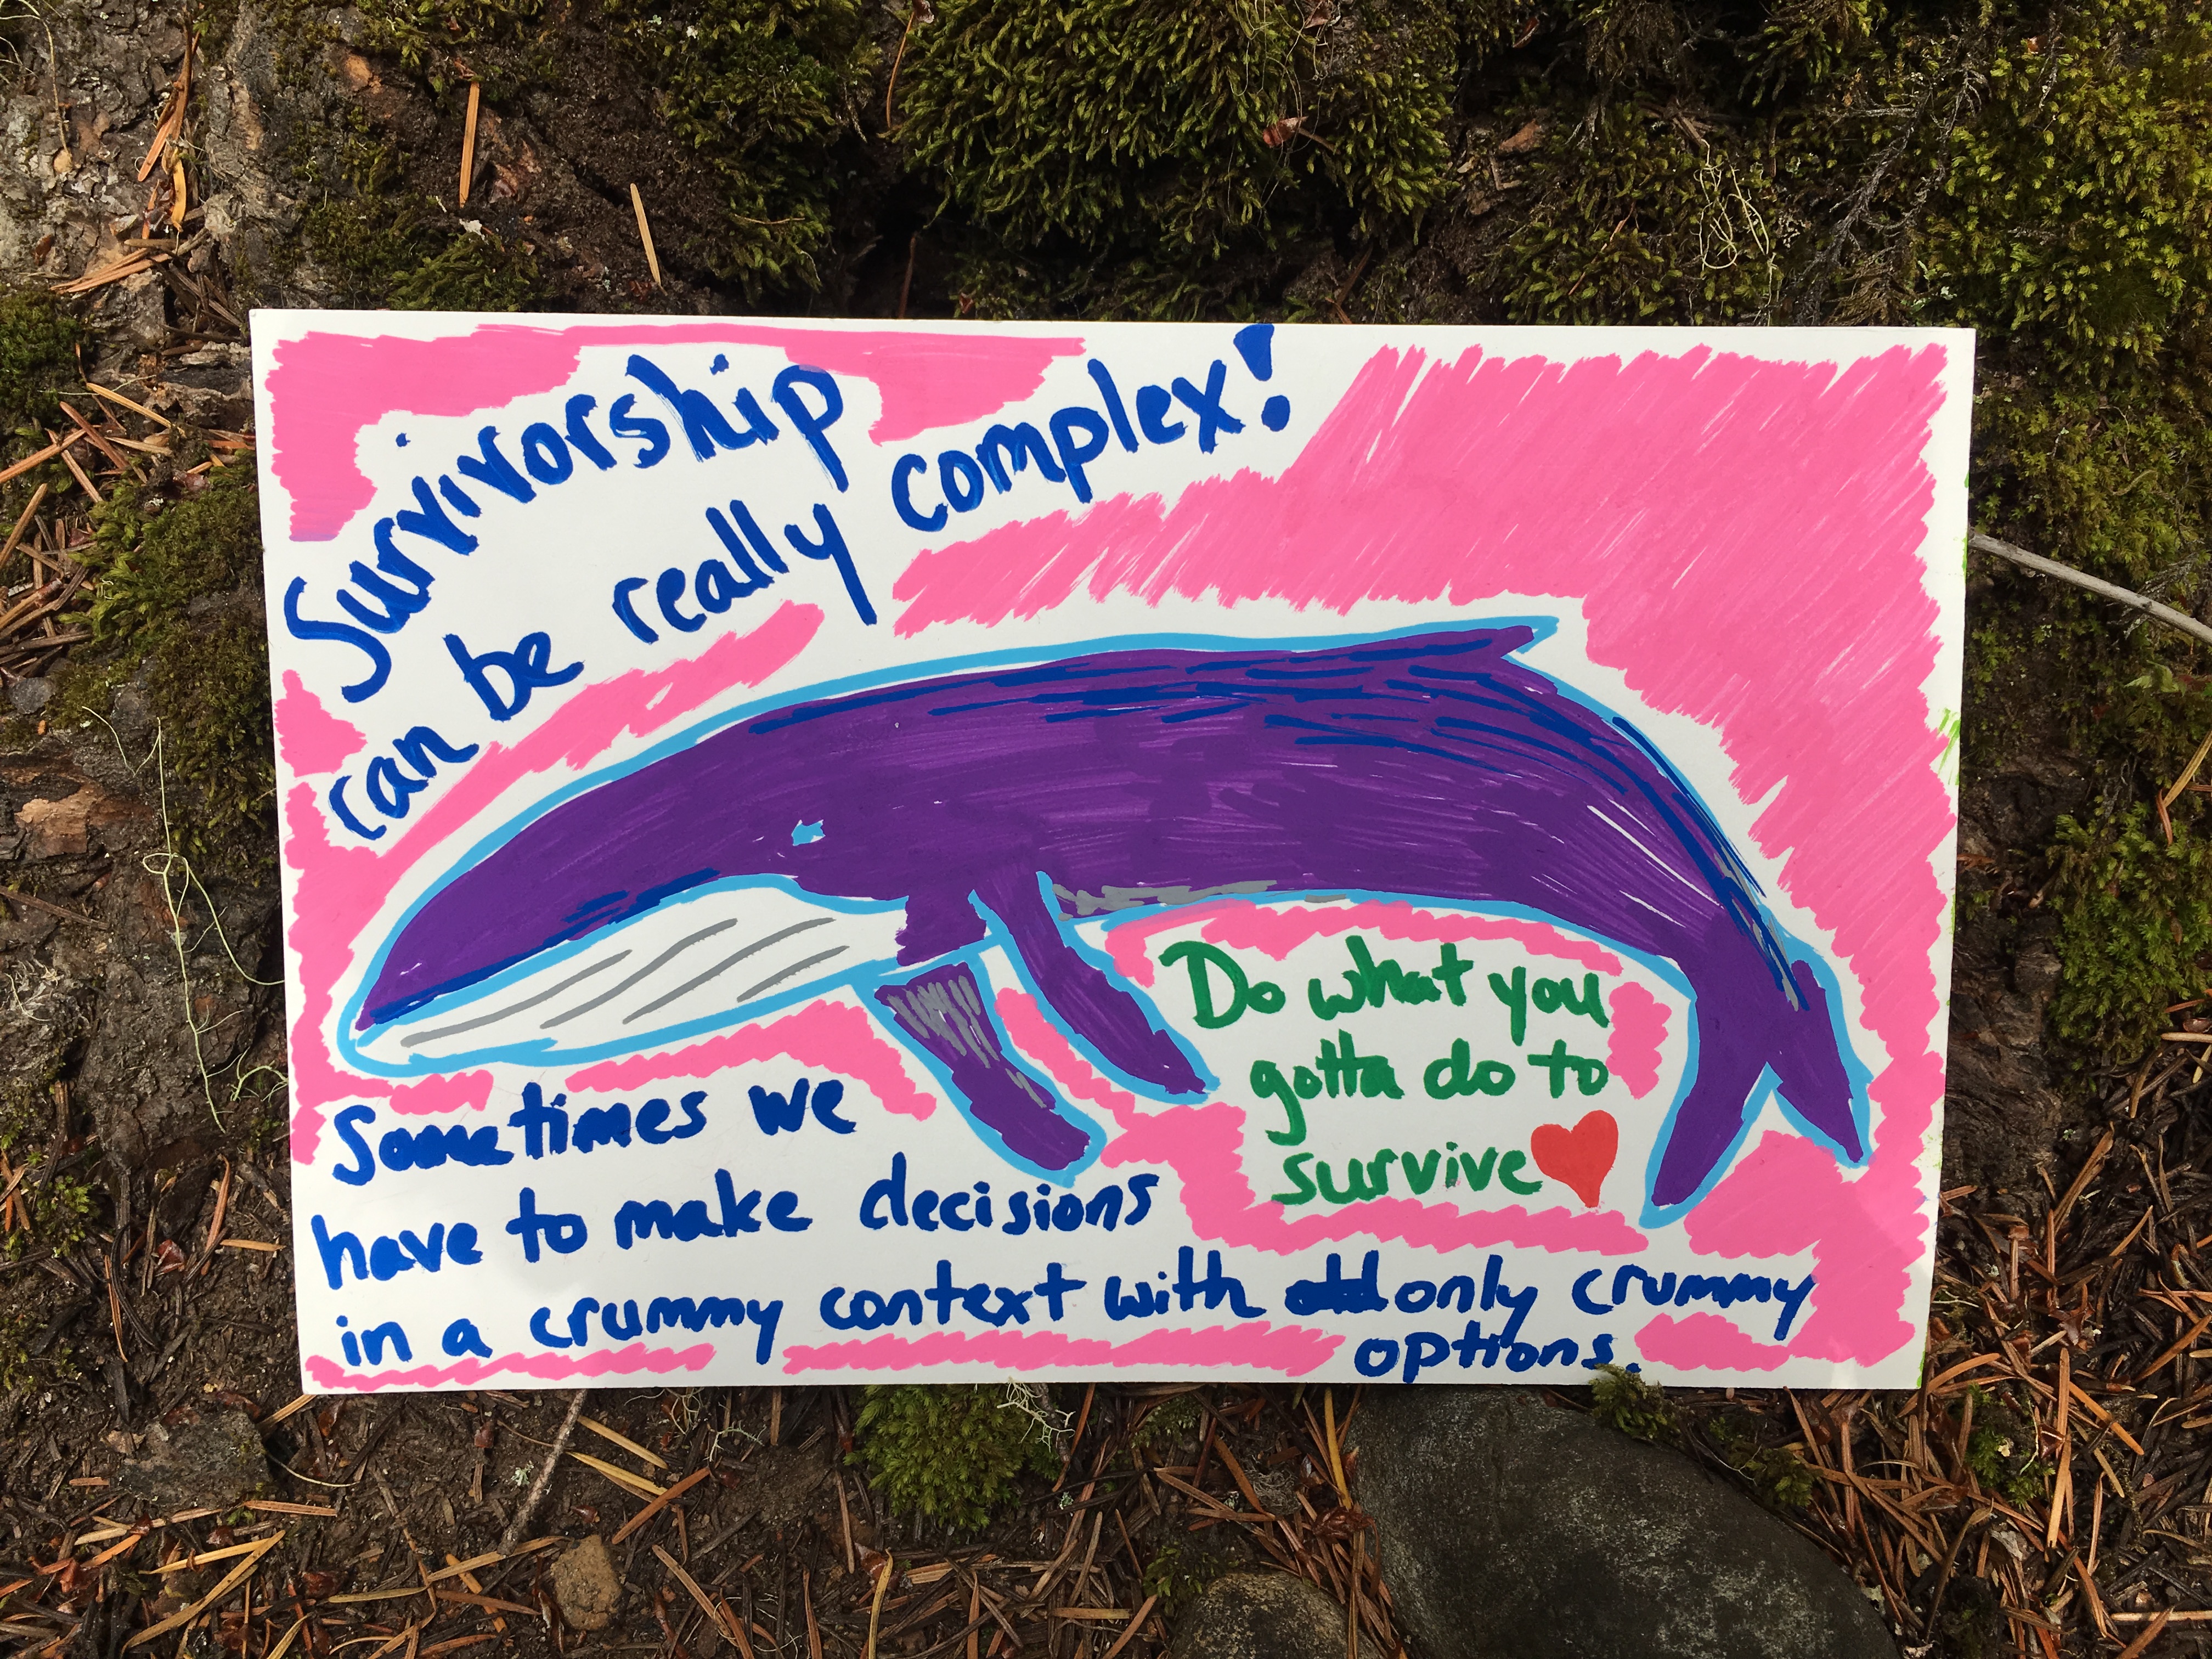 Survivorship
can be really complex!
Do what you
gotta do to
survive
Sometimes we
have to make decisions
in a crummy context with only crummy
options.